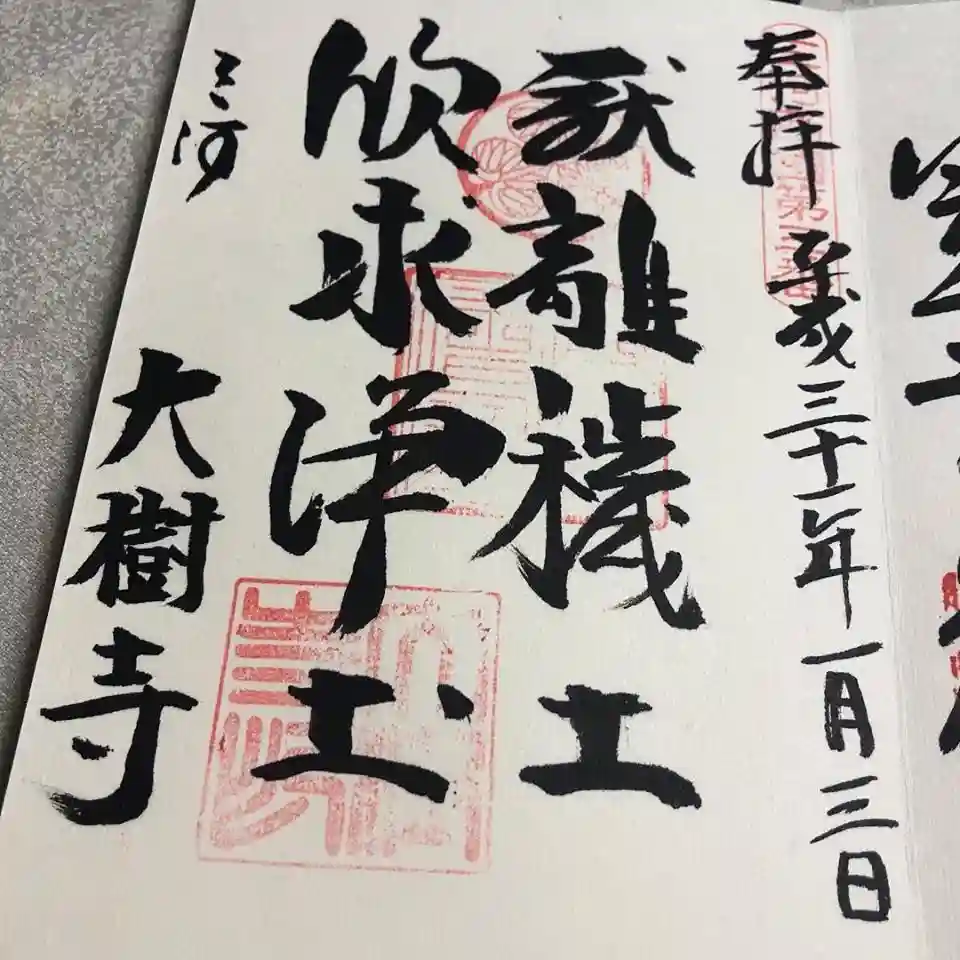 奉拝 平成三十一年一月三日
厭離穢土
欣求浄土
三河 大樹寺